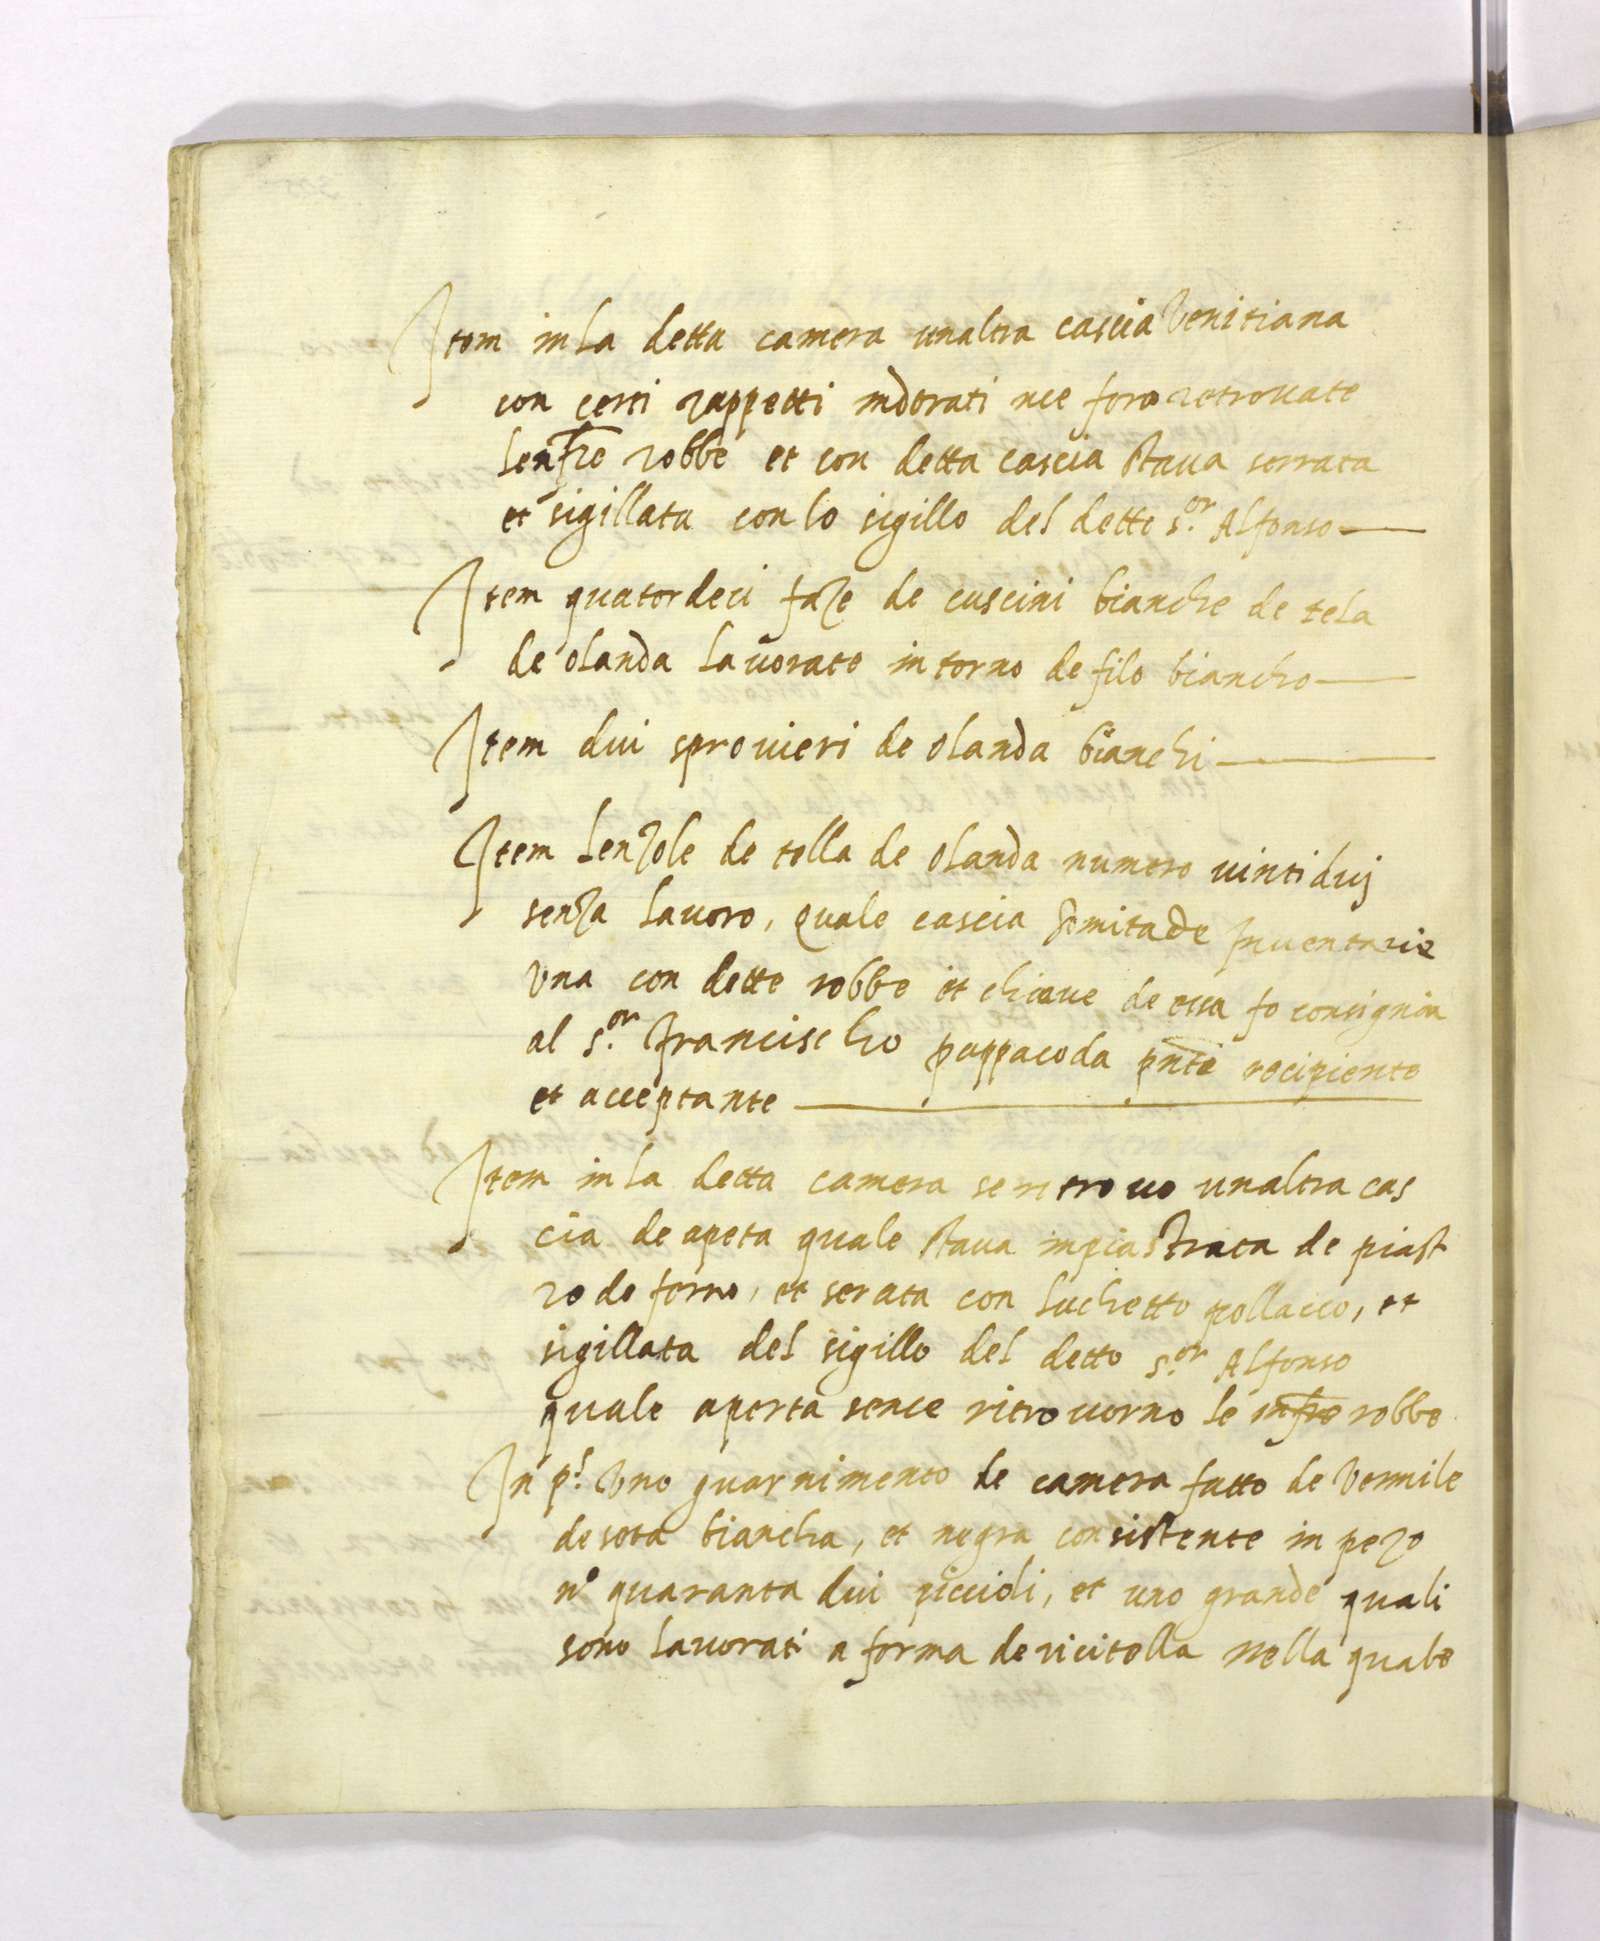 Item in la detta camera unaltra cascia Venitiana
con certi rappetti indorati nce foro retrovate
le infre robbe et con detta cascia stava serrata
et sigillata con lo sigillo del detto s.or Alfonso
Item quatordeci faze de cuscini bianche de tela
de olanda lavorate intorno de filo biancho
Item dui sprovieri de olanda bianchi
Item lenzole de tella de olanda numero vinti duj
senza lavoro, quale cascia finita de Inventarie
una con dette robbe et chiave de essa fo consignata
al s.or Francischo pappacoda pnte recipiente
et acceptante
Item in la detta camera se ritrovo unaltra cas
cia de apeta quale stava inpiastrata de piast
re de ferro, et serata con luchetto pollacco, et
sigillata del sigillo del detto s.or Alfonso
quale aperta sence ritrovorno le infre robbe
In p.s Uno guarnimento de camera fatto de Vermile
de seta biancha, et negra consistente in peze
no quaranta dui piccioli, et uno grande quali
sono lavorati a forma de vicitella nella quale